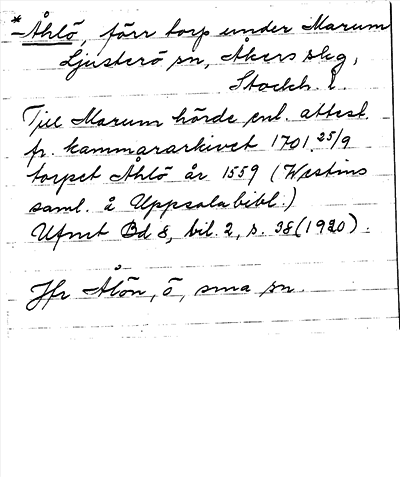 * Åhlö, förr torp under Marum
Ljusterö sn, Åkers skg,
Stockh. l.
Till Marum hörde enl. attest.
fr. kammararkivet 1701 25/9
torpet Åhlö år 1559 (Westins
saml. å Uppsala bibl.)
Ufmt Bd 8, bil. 2, s. 38 (1920).
Jfr Ålön, ö, sma sn.